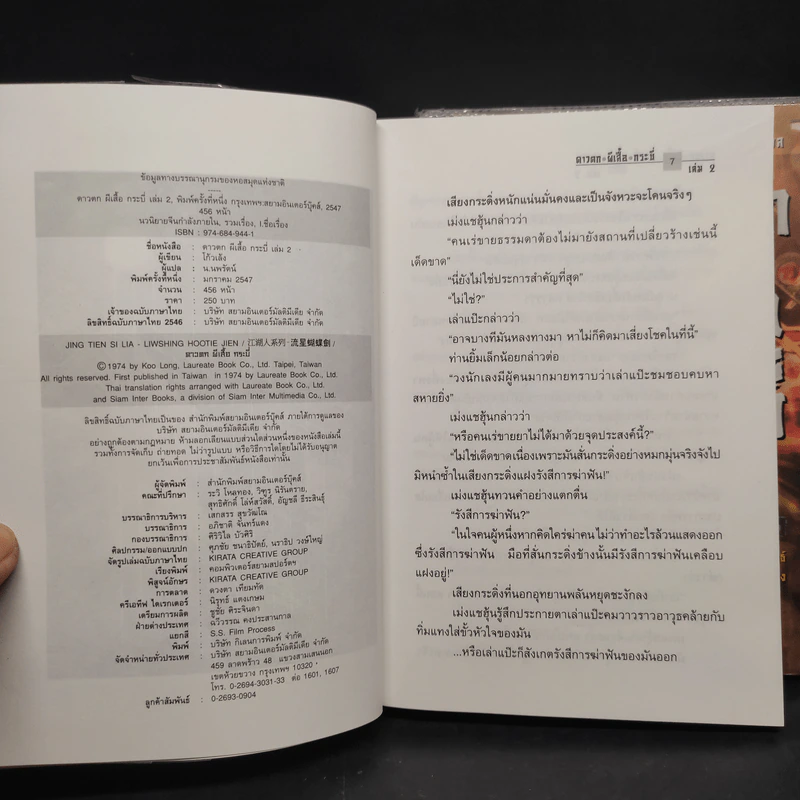 ข้อมูลทางบรรณานุกรมของหอสมุดแห่งชาติ
-----
ดาวตก ผีเสื้อ กระบี่ เล่ม 2, พิมพ์ครั้งที่หนึ่ง กรุงเทพฯ:สยามอินเตอร์บุ๊คส์, 2547
456 หน้า
นวนิยายจีนกำลังภายใน, รวมเรื่อง, I.ชื่อเรื่อง
ISBN : 974-684-944-1
ชื่อหนังสือ : ดาวตก ผีเสื้อ กระบี่ เล่ม 2
ผู้เขียน : โก้วเล้ง
ผู้แปล : น.นพรัตน์
พิมพ์ครั้งที่หนึ่ง : มกราคม 2547
จำนวน : 456 หน้า
ราคา : 250 บาท
เจ้าของฉบับภาษาไทย : บริษัท สยามอินเตอร์มัลติมีเดีย จำกัด
ลิขสิทธิ์ฉบับภาษาไทย 2546 : บริษัท สยามอินเตอร์มัลติมีเดีย จำกัด
JING TIEN SI LIA - LIWSHING HOOTIE JIEN / 江湖人系列·流星蝴蝶劍 /
ดาวตก ผีเสื้อ กระบี่
©1974 by Koo Long, Laureate Book Co., Ltd. Taipei, Taiwan
All rights reserved. First published in Taiwan in 1974 by Laureate Book Co., Ltd.
Thai translation rights arranged with Laureate Book Co., Ltd. and
and Siam Inter Books, a division of Siam Inter Multimedia Co., Ltd.
ลิขสิทธิ์ฉบับภาษาไทยเป็นของ สำนักพิมพ์สยามอินเตอร์บุ๊คส์ ภายใต้การดูแลของ
บริษัท สยามอินเตอร์มัลติมีเดีย จำกัด
อย่างถูกต้องตามกฎหมาย ห้ามลอกเลียนแบบส่วนใดส่วนหนึ่งของหนังสือเล่มนี้
รวมทั้งการจัดเก็บ ถ่ายทอด ไม่ว่ารูปแบบ หรือวิธีการใดโดยไม่ได้รับอนุญาต
ยกเว้นเพื่อการประชาสัมพันธ์หนังสือเท่านั้น
ผู้จัดพิมพ์ : สำนักพิมพ์สยามอินเตอร์บุ๊คส์
คณะที่ปรึกษา : ระวิ โหลทอง, วิฑูร นิรันตราย,
สุทธิศักดิ์ โล่ห์สวัสดิ์, อัญชลี ธีระสินธุ์
บรรณาธิการบริหาร : เสกสรร สุขวัฒโน
บรรณาธิการ : อภิชาติ จันทร์แดง
กองบรรณาธิการ : ศิริวิไล บัวศิริ
ศิลปกรรม/ออกแบบปก : ศุภชัย ชนาธิปัตย์, นราธิป วงษ์ใหญ่
จัดรูปเล่มฉบับภาษาไทย : KIRATA CREATIVE GROUP
เรียงพิมพ์ : คอมพิวเตอร์สยามสปอร์ตฯ
พิสูจน์อักษร : KIRATA CREATIVE GROUP
การตลาด : ดวงตา เทียมทัด
ครีเอทีฟ ไดเรกเตอร์ : นิรุทธ์ แดงเกษม
เตรียมการผลิต : ชูชัย ศิระจินดา
ฝ่ายต่างประเทศ : ฉวีวรรณ คงประสานกาล
แยกสี : S.S. Film Process
พิมพ์ : บริษัท กิเลนการพิมพ์ จำกัด
จัดจำหน่ายทั่วประเทศ : บริษัท สยามอินเตอร์มัลติมีเดีย จำกัด
459 ลาดพร้าว 48 แขวงสามเสนนอก
เขตห้วยขวาง กรุงเทพฯ 10320
โทร. 0-2694-3031-33 ต่อ 1601, 1607
ลูกค้าสัมพันธ์ : 0-2693-0904
ดาวตก ผีเสื้อ กระบี่ 7
เล่ม 2
เสียงกระดิ่งหนักแน่นมั่นคงและเป็นจังหวะจะโคนจริงๆ
เม่งแชฮุ้นกล่าวว่า
"คนเร่ขายธรรมดาต้องไม่มายังสถานที่เปลี่ยวร้างเช่นนี้
เด็ดขาด"
"นี่ยังไม่ใช่ประการสำคัญที่สุด"
"ไม่ใช่?"
เล่าแป๊ะกล่าวว่า
"อาจบางทีมันหลงทางมา หาไม่ก็คิดมาเสี่ยงโชคในที่นี้"
ท่านยิ้มเล็กน้อยกล่าวต่อ
"วงนักเลงมีผู้คนมากมายทราบว่าเล่าแป๊ะชมชอบคบหา
สหายยิ่ง"
เม่งแชฮุ้นกล่าวว่า
"หรือคนเร่ขายยาไม่ได้มาด้วยจุดประสงค์นี้?"
"ไม่ใช่เด็ดขาดเนื่องเพราะมันสั่นกระดิ่งอย่างหมกมุ่นจริงจังไป
มิหนำซ้ำในเสียงกระดิ่งแฝงรังสีการฆ่าฟัน!"
เม่งแชฮุ้นทวนคำอย่างแตกตื่น
"รังสีการฆ่าฟัน?"
"ในใจคนผู้หนึ่งหากคิดใคร่ฆ่าคนไม่ว่าทำอะไรล้วนแสดงออก
ซึ่งรังสีการฆ่าฟัน มือที่สั่นกระดิ่งข้างนั้นมีรังสีการฆ่าฟันเคลือบ
แฝงอยู่!"
เสียงกระดิ่งที่นอกอุทยานพลันหยุดชะงักลง
เม่งแชฮุ้นรู้สึกประกายตาเล่าแป๊ะคมวาวราวอาวุธคล้ายกับ
ทิ่มแทงใส่ขั้วหัวใจของมัน
...หรือเล่าแป๊ะก็สังเกตรังสีการฆ่าฟันของมันออก